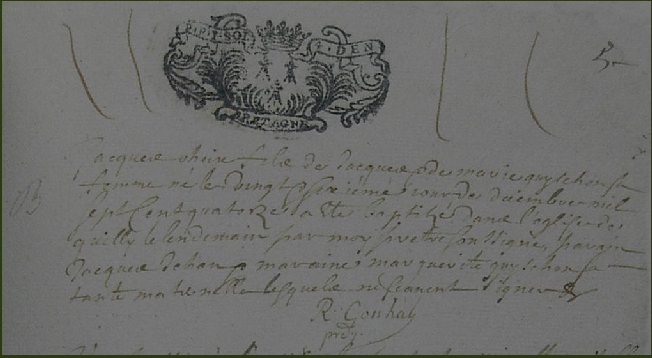 P·P·T·SOL 2·DEN
BRETAGNE
B
Jacques fils de Jacques & de marie guyschousa
femme né le Vingt sixieme jour de décembre mil
sept Cent quatorze a este baptizé dans l'eglise de
quilly le lendemain par moy pretre soussigné, parain
Jacques dehan, maraine marguerite guyschousa
tante maternelle lesquels ne scavent signer
R: Gouhay